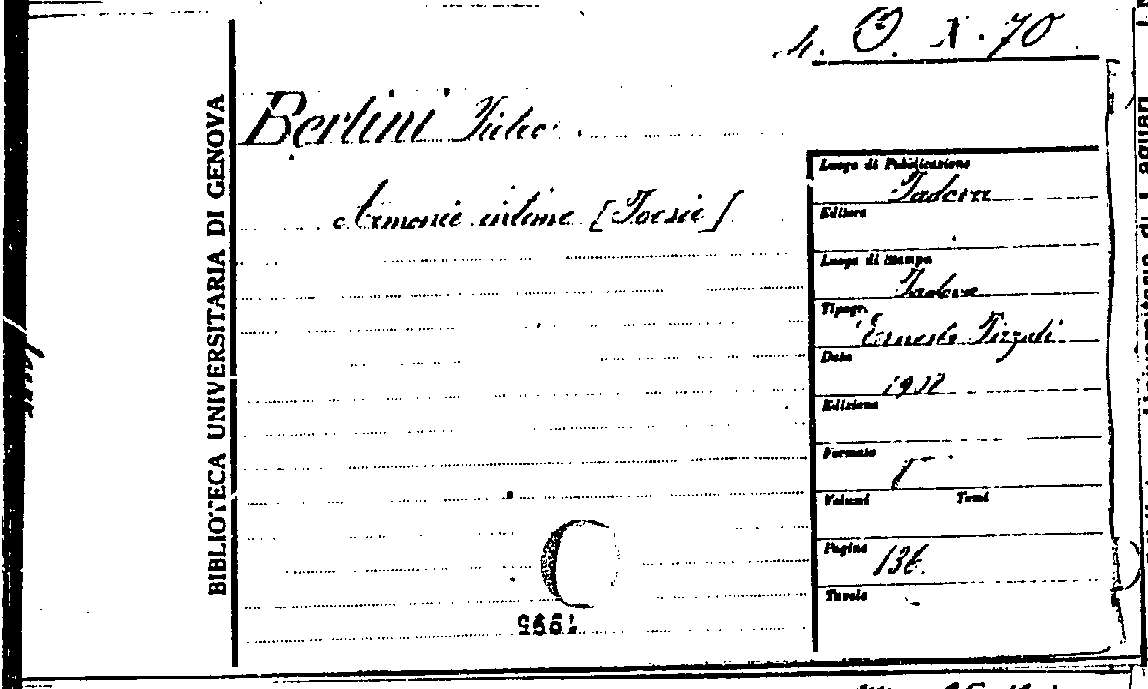 4. O. X. 70
BIBLIOTECA UNIVERSITARIA DI GENOVA
Bertini
Armonie intime [Poesie]
Luogo di Pubblicazione
Padova
Editore
Luogo di stampa
Padova
Tipogr.
Ernesto
Data
Edizione
Formato
Volumi Tomi
Pagine
136.
Tavole